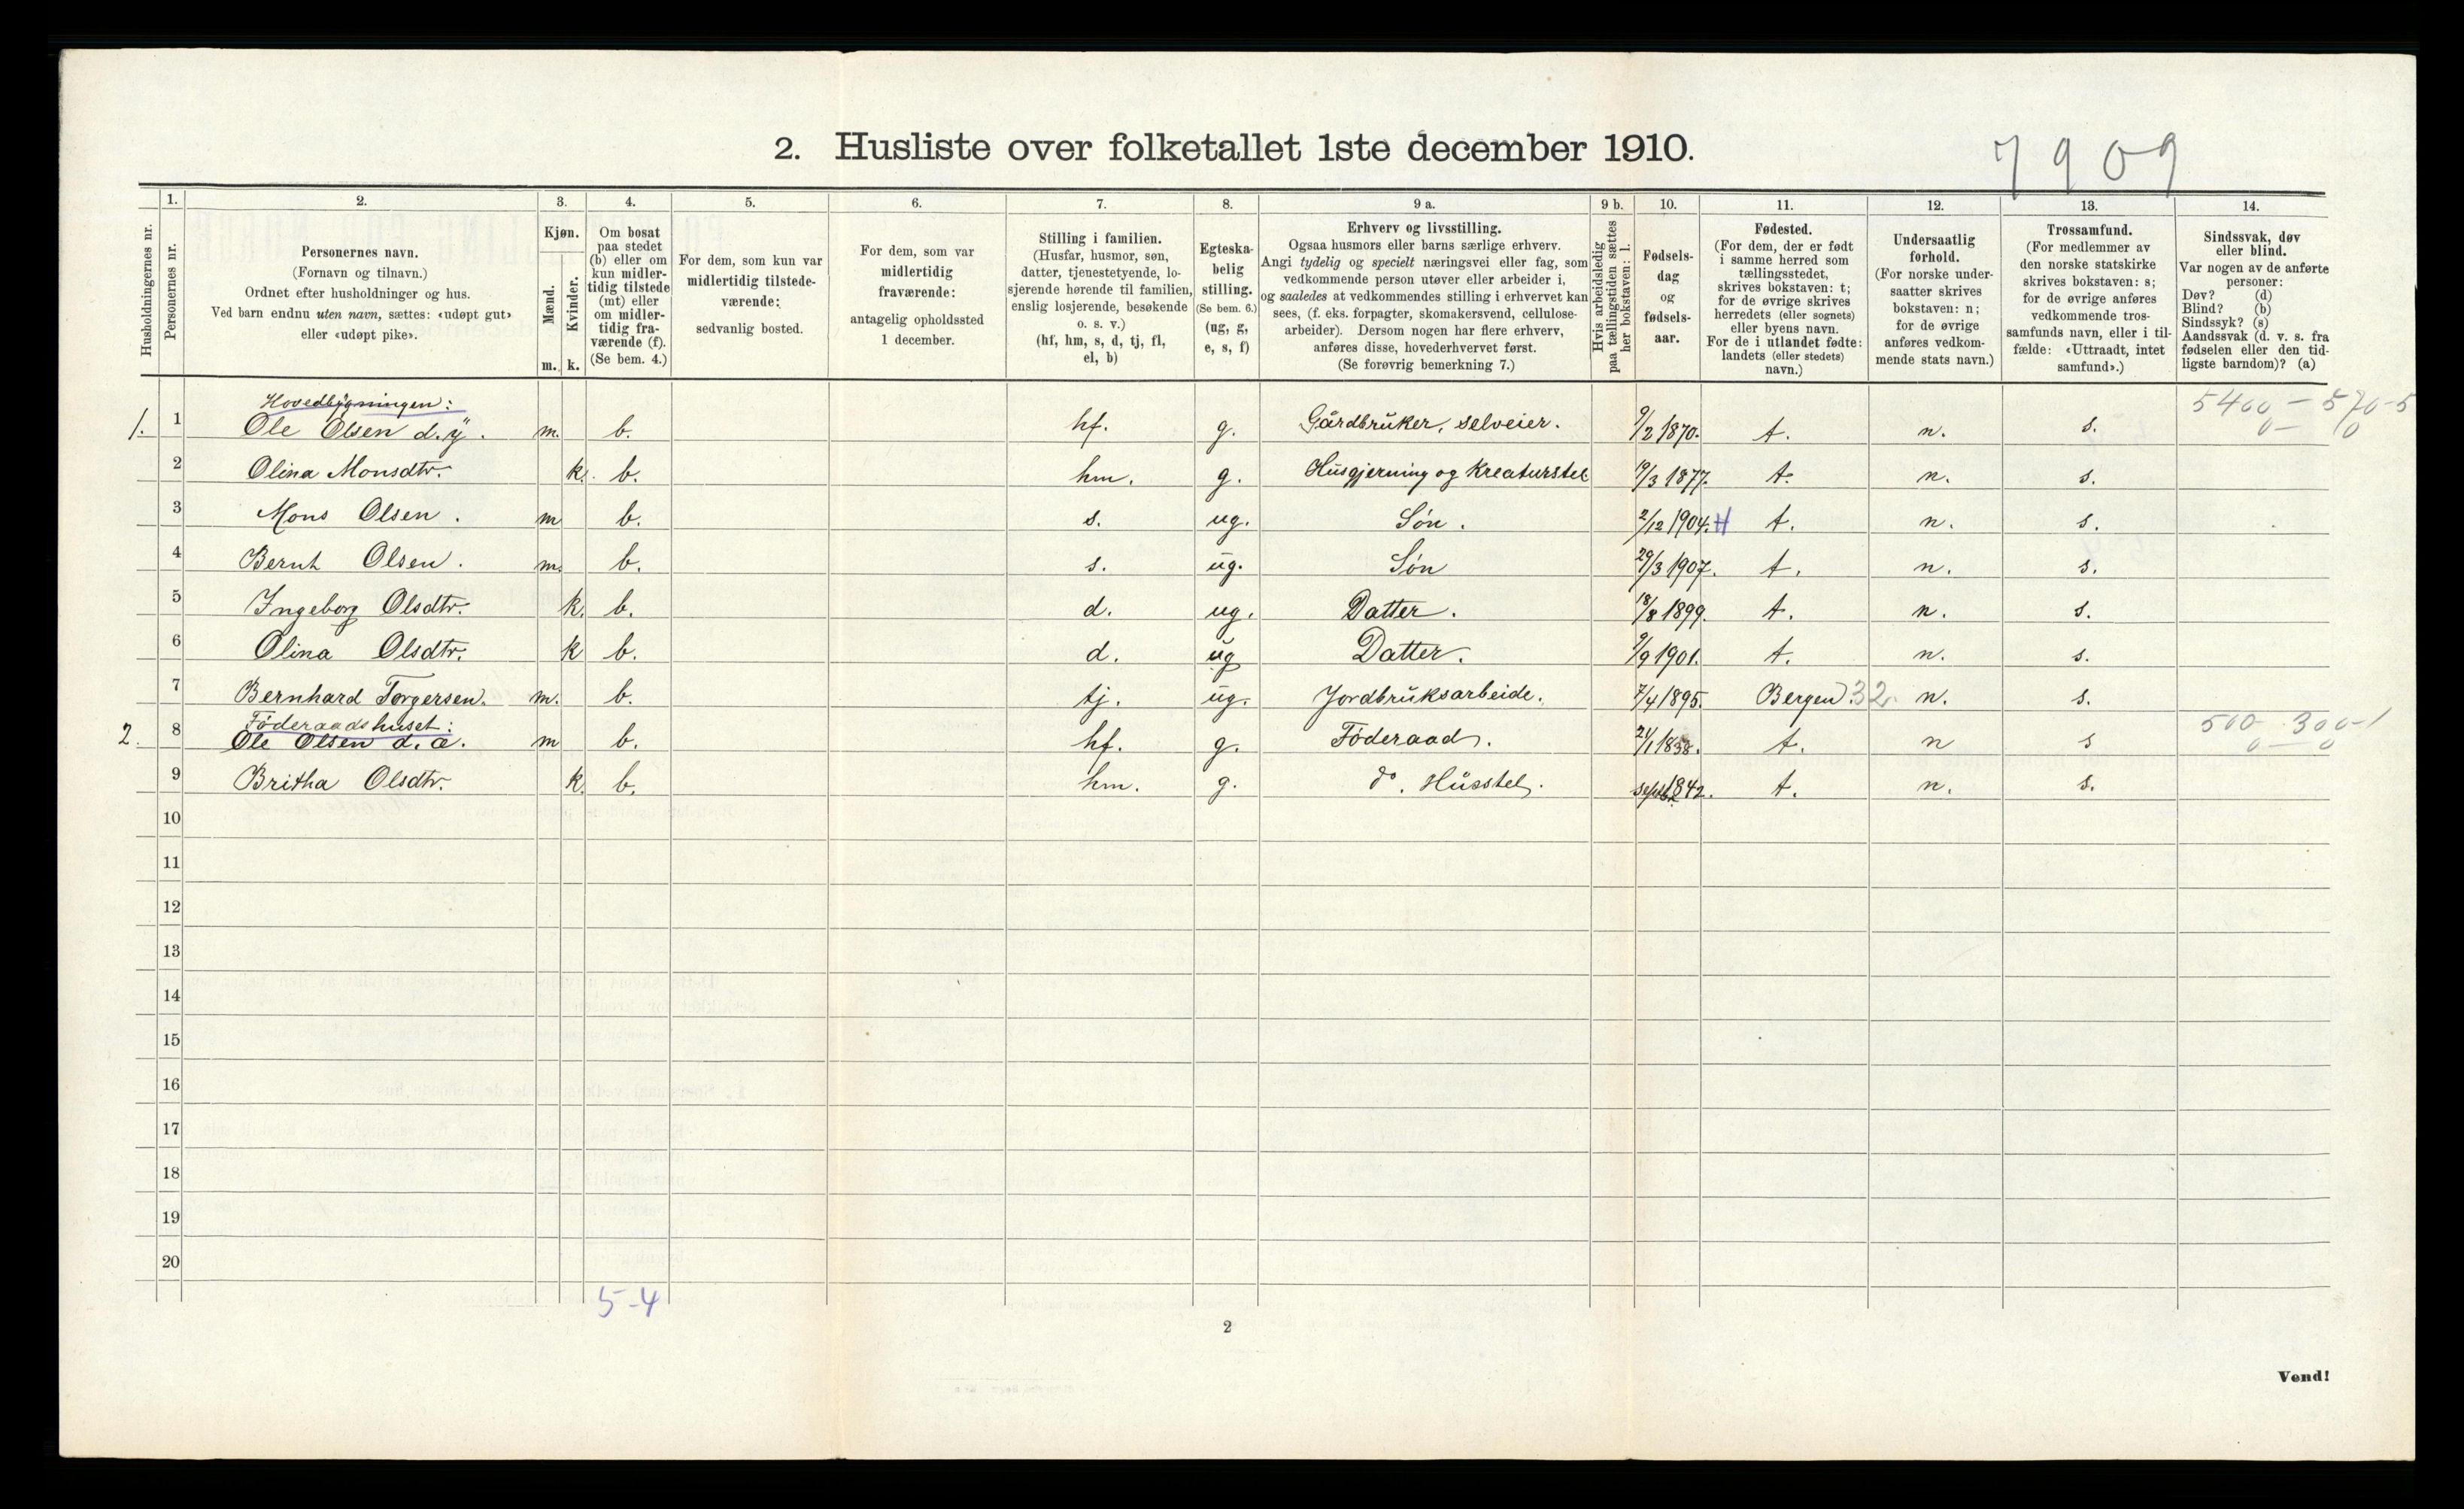 2. Husliste over folketallet 1ste december 1910.
7909
Husholdningernes nr.
1.
Personernes nr.
2.
Personernes navn.
(Fornavn og tilnavn.)
Ordnet efter husholdninger og hus.
Ved barn endnu uten navn, sættes: «udøpt gut»
eller «udøpt pike».
3.
Kjøn.
Mænd.
m.
Kvinder.
k.
4.
Om bosat
paa stedet
(b) eller om
kun midler-
tidig tilstede
(mt) eller
om midler-
tidig fra-
værende (f).
(Se bem. 4.)
5.
For dem, som kun var
midlertidig tilstede-
værende:
sedvanlig bosted.
6.
For dem, som var
midlertidig
fraværende:
antagelig opholdssted
1 december.
7.
Stilling i familien.
(Husfar, husmor, søn,
datter, tjenestetyende, lo-
sjerende hørende til familien,
enslig losjerende, besøkende
o. s. v.)
(hf, hm, s, d, tj, fl,
el, b)
8.
Egteska-
belig
stilling.
(Se bem. 6.)
(ug, g,
e, s, f)
9 a.
Erhverv og livsstilling.
Ogsaa husmors eller barns særlige erhverv.
Angi tydelig og specielt næringsvei eller fag, som
vedkommende person utøver eller arbeider i,
og saaledes at vedkommendes stilling i erhvervet kan
sees, (f. eks. forpagter, skomakersvend, cellulose-
arbeider). Dersom nogen har flere erhverv,
anføres disse, hovederhvervet først.
(Se forøvrig bemerkning 7.)
9 b.
Hvis arbeidsledig
paa tællingstiden sættes
her bokstaven: l.
10.
Fødsels-
dag
og
fødsels-
aar.
11.
Fødested.
(For dem, der er født
i samme herred som
tællingsstedet,
skrives bokstaven: t;
for de øvrige skrives
herredets (eller sognets)
eller byens navn.
For de i utlandet fødte:
landets (eller stedets)
navn.)
12.
Undersaatlig
forhold.
(For norske under-
saatter skrives
bokstaven: n;
for de øvrige
anføres vedkom-
mende stats navn.)
13.
Trossamfund.
(For medlemmer av
den norske statskirke
skrives bokstaven: s;
for de øvrige anføres
vedkommende tros-
samfunds navn, eller i til-
fælde: «Uttraadt, intet
samfund».)
14.
Sindssvak, døv
eller blind.
Var nogen av de anførte
personer:
Døv? (d)
Blind? (b)
Sindssyk? (s)
Aandssvak (d. v. s. fra
fødselen eller den tid-
ligste barndom)? (a)
Hovedbygningen:
1. 1 Ole Olsen d.y. m. b. hf. g. Gårdbruker, selveier. 9/2 1870. t. n. s. 5400 - 570-5
0 - 0
2 Olina Monsdtr. k. b. hm. g. Husgjerning og Kreaturstel 19/3 1877. t. n. s.
3 Mons Olsen. m b. s. ug. Søn. 2/12 1904. t. n. s.
4 Bernt Olsen. m. b. s. ug. Søn 29/3 1907. t. n. s.
5 Ingeborg Olsdtr. k. b. d. ug. Datter. 18/8 1899. t. n. s.
6 Olina Olsdtr. k b. d. ug Datter. 9/9 1901. t. n. s.
7 Bernhard Torgersen. m. b. tj. ug. Jordbruksarbeide. 7/4 1895. Bergen. 32 n. s.
Föderaadshuset:
2. 8 Ole Olsen d.æ. m b. hf. g. Föderaad. 21/1 1838. t. n s 500 - 300-1
0 - 0
9 Britha Olsdtr. k. b. hm. g. do. Husstel. sept. 1842. t. n. s.
10
11
12
13
14
15
16
17
18
19
20
5-4
2
Vend!